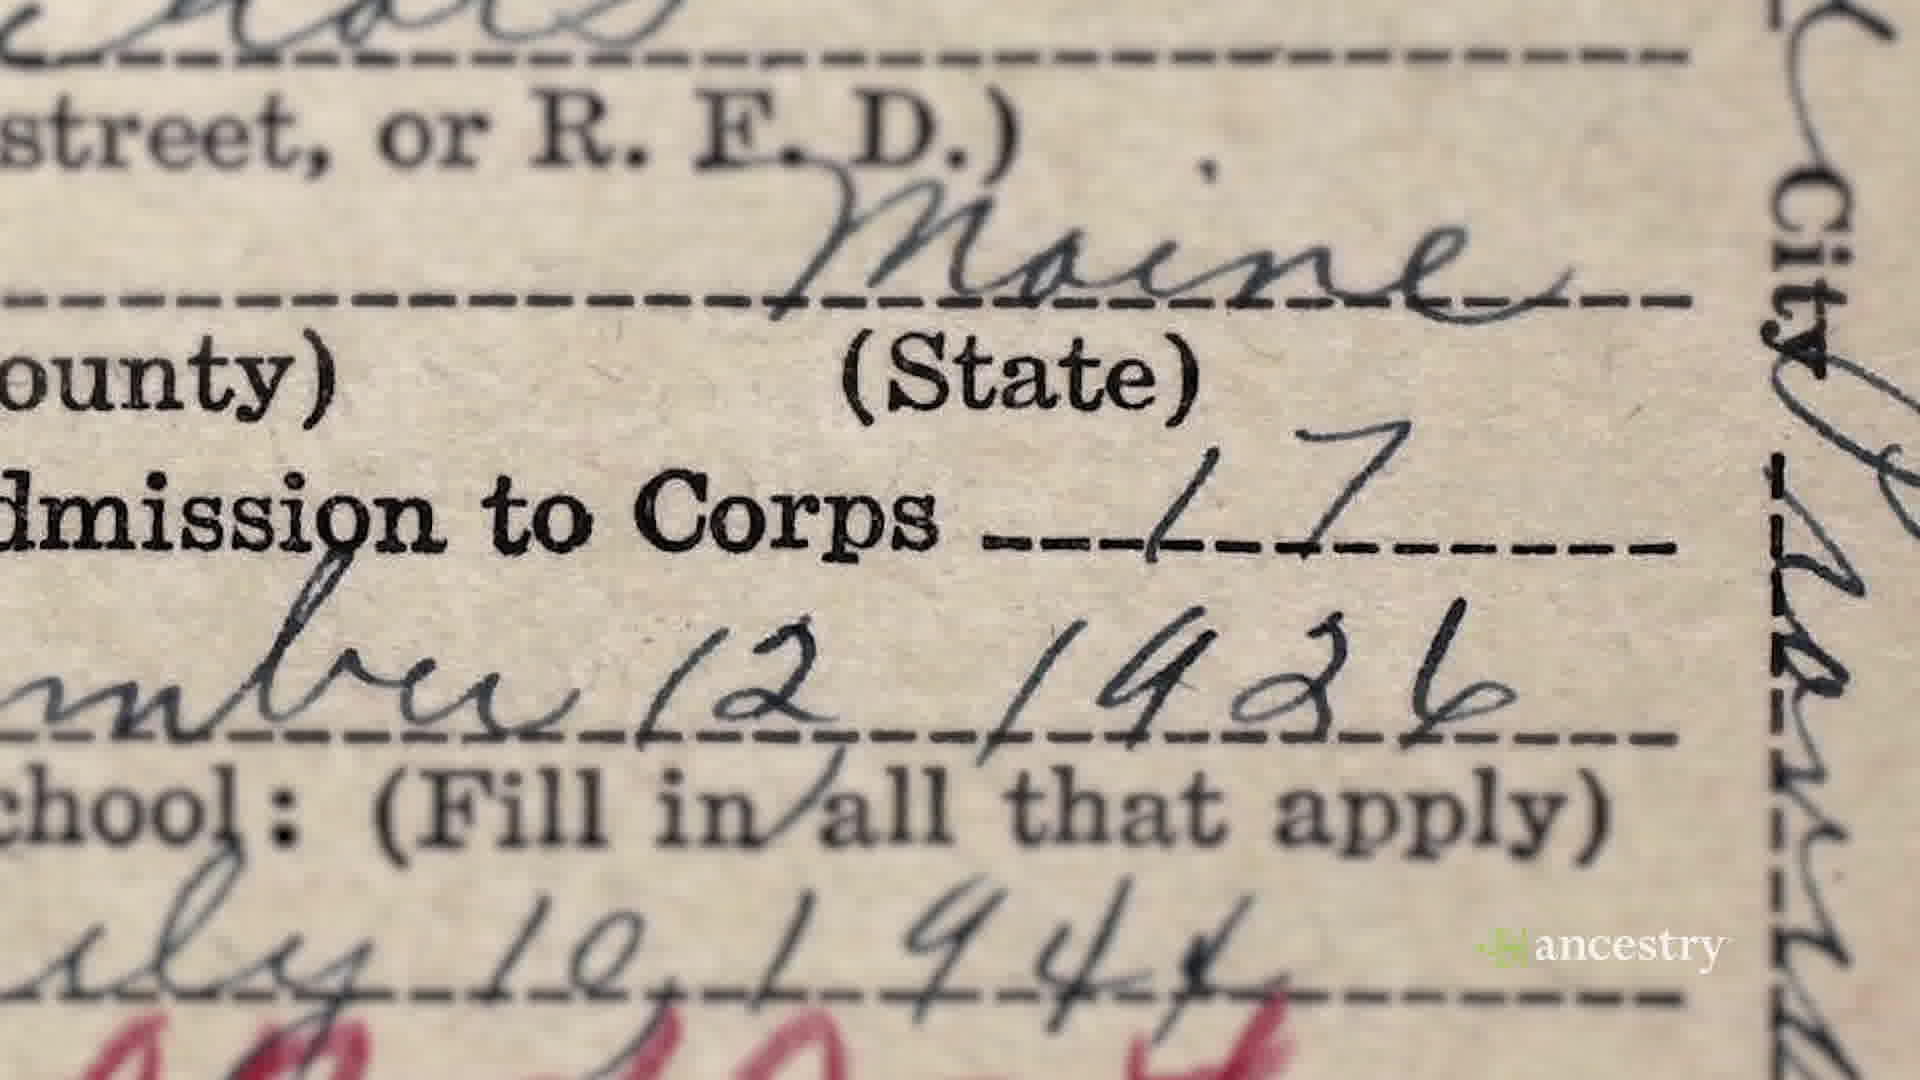 street, or R. F. D.)
Maine
ounty)
(State)
dmission to Corps 17
mber 12 1926
chool: (Fill in all that apply)
uly 10, 1944
City
ancestry